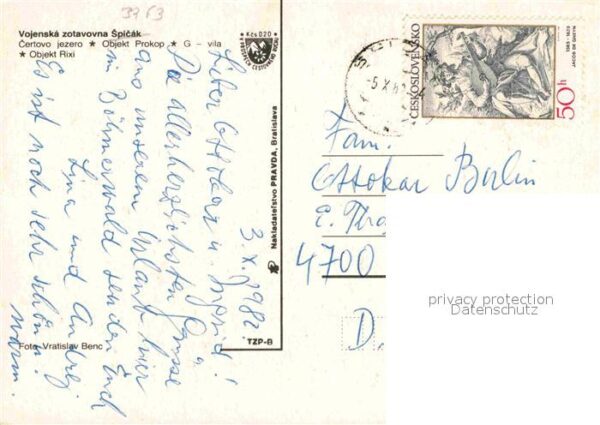 3763
Vojenská zotavovna Špičák
Čertovo jezero ★ Objekt Prokop ★ G – vila
★ Objekt Rixi
Kčs 020
3. X. 1982
Lieber Ottokar u. Ingrid!
Die allerherzlichsten Grüsse
aus unserem Urlaub hier
im Böhmerwald senden Euch
Lina und Andrej
Es ist noch sehr schön u.
warm.
Foto Vratislav Benc
Nakladateľstvo PRAVDA, Bratislava
TZP-B
ČESKOSLOVENSKO
50 h
1565 - 1629
JACOB DE GHEYN
-5. X.
Fam.
Ottokar Berlin
E. Tho
4700
D.
privacy protection
Datenschutz